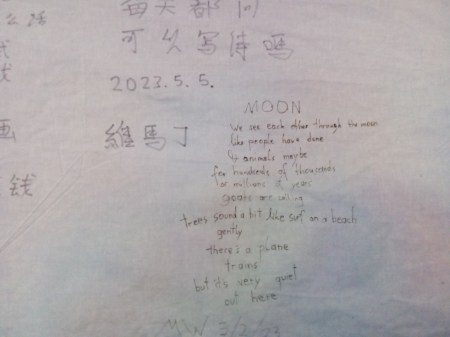 么活
我
每天都问
可以写诗吗
2023.5.5.
画
維馬丁
钱
MOON
We see each other through the moon
like people have done
& animals maybe
for hundreds of thousands
or millions of years
goats are calling
trees sound a bit like surf on a beach
gently
there's a plane
trains
but it's very quiet
out here
MW 3/2/23